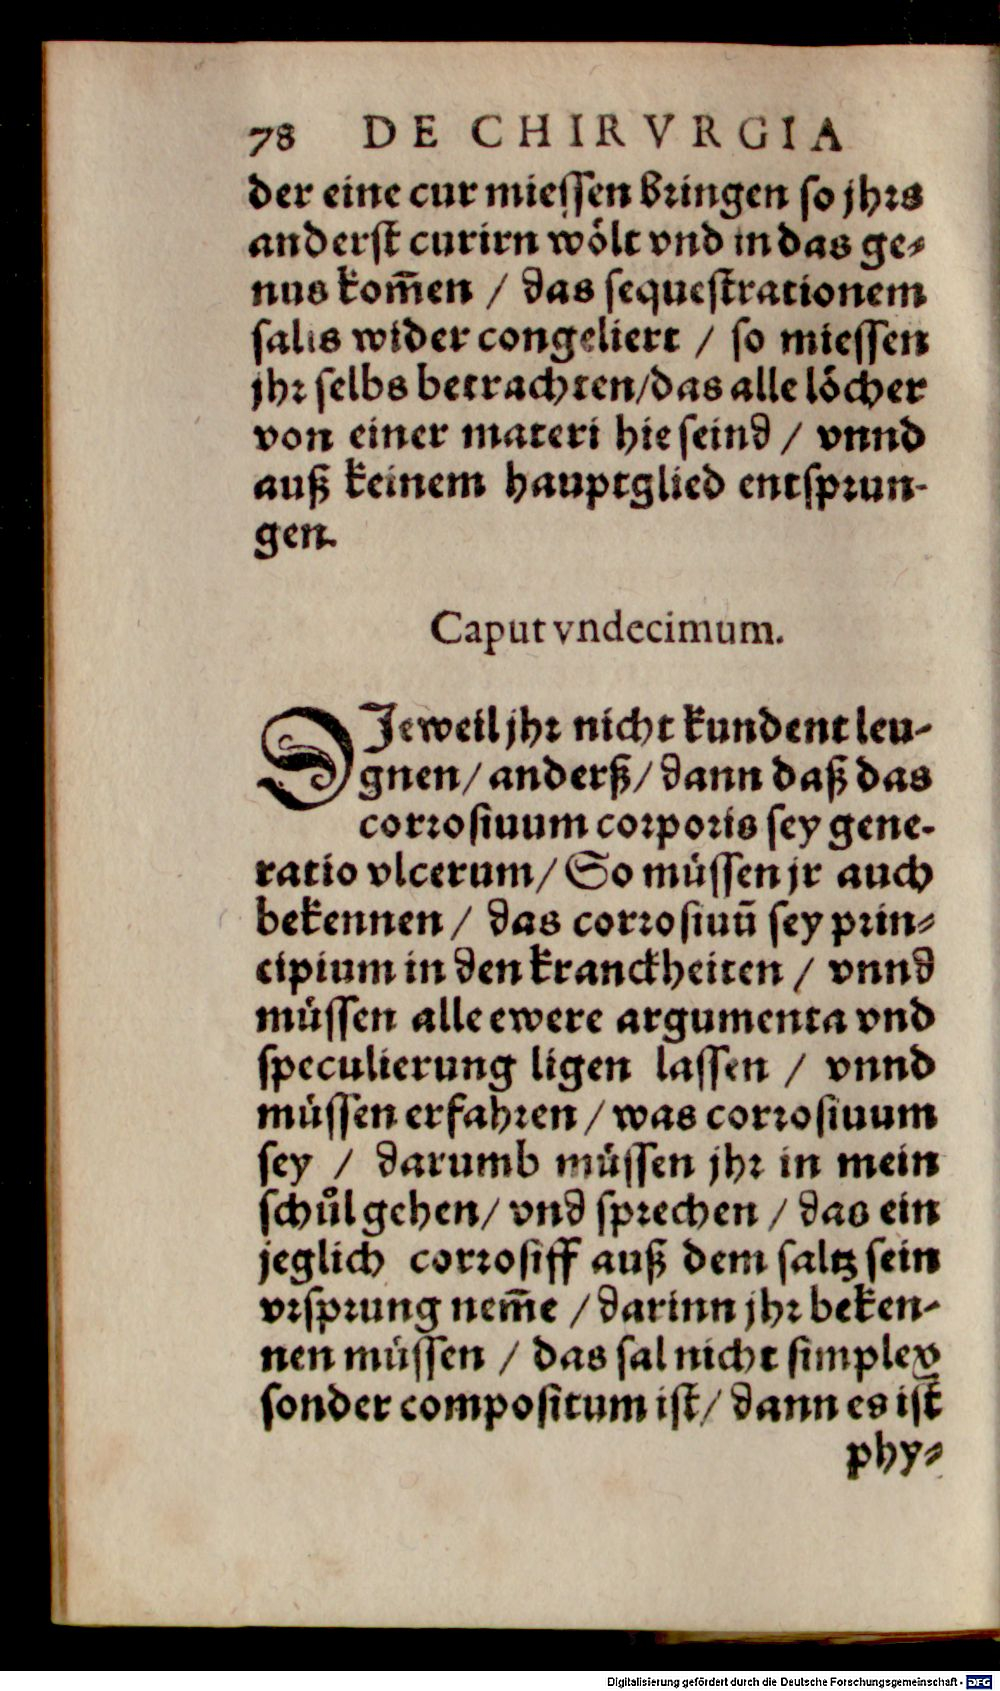 78 DE CHIRVRGIA
der eine cur miessen bringen so jhrs
anderst curirn wölt vnd in das ge-
nus kom̄en / das sequestrationem
salis wider congeliert / so miessen
jhr selbs betrachten/das alle löcher
von einer materi hie seind / vnnd
auß keinem hauptglied entsprun-
gen.
Caput vndecimum.
DJeweil jhr nicht kundent leu-
gnen/ anderß/ dann daß das
corrosiuum corporis sey gene-
ratio vlcerum/ So müssen jr auch
bekennen / das corrosiuū sey prin-
cipium in den kranckheiten / vnnd
müssen alle ewere argumenta vnd
speculierung ligen lassen / vnnd
müssen erfahren / was corrosiuum
sey / darumb müssen jhr in mein
schůl gehen/ vnd sprechen / das ein
jeglich corrosiff auß dem saltz sein
vrsprung nem̄e / darinn jhr beken-
nen müssen / das sal nicht simplex
sonder compositum ist/ dann es ist
phy-
Digitalisierung gefördert durch die Deutsche Forschungsgemeinschaft - DFG